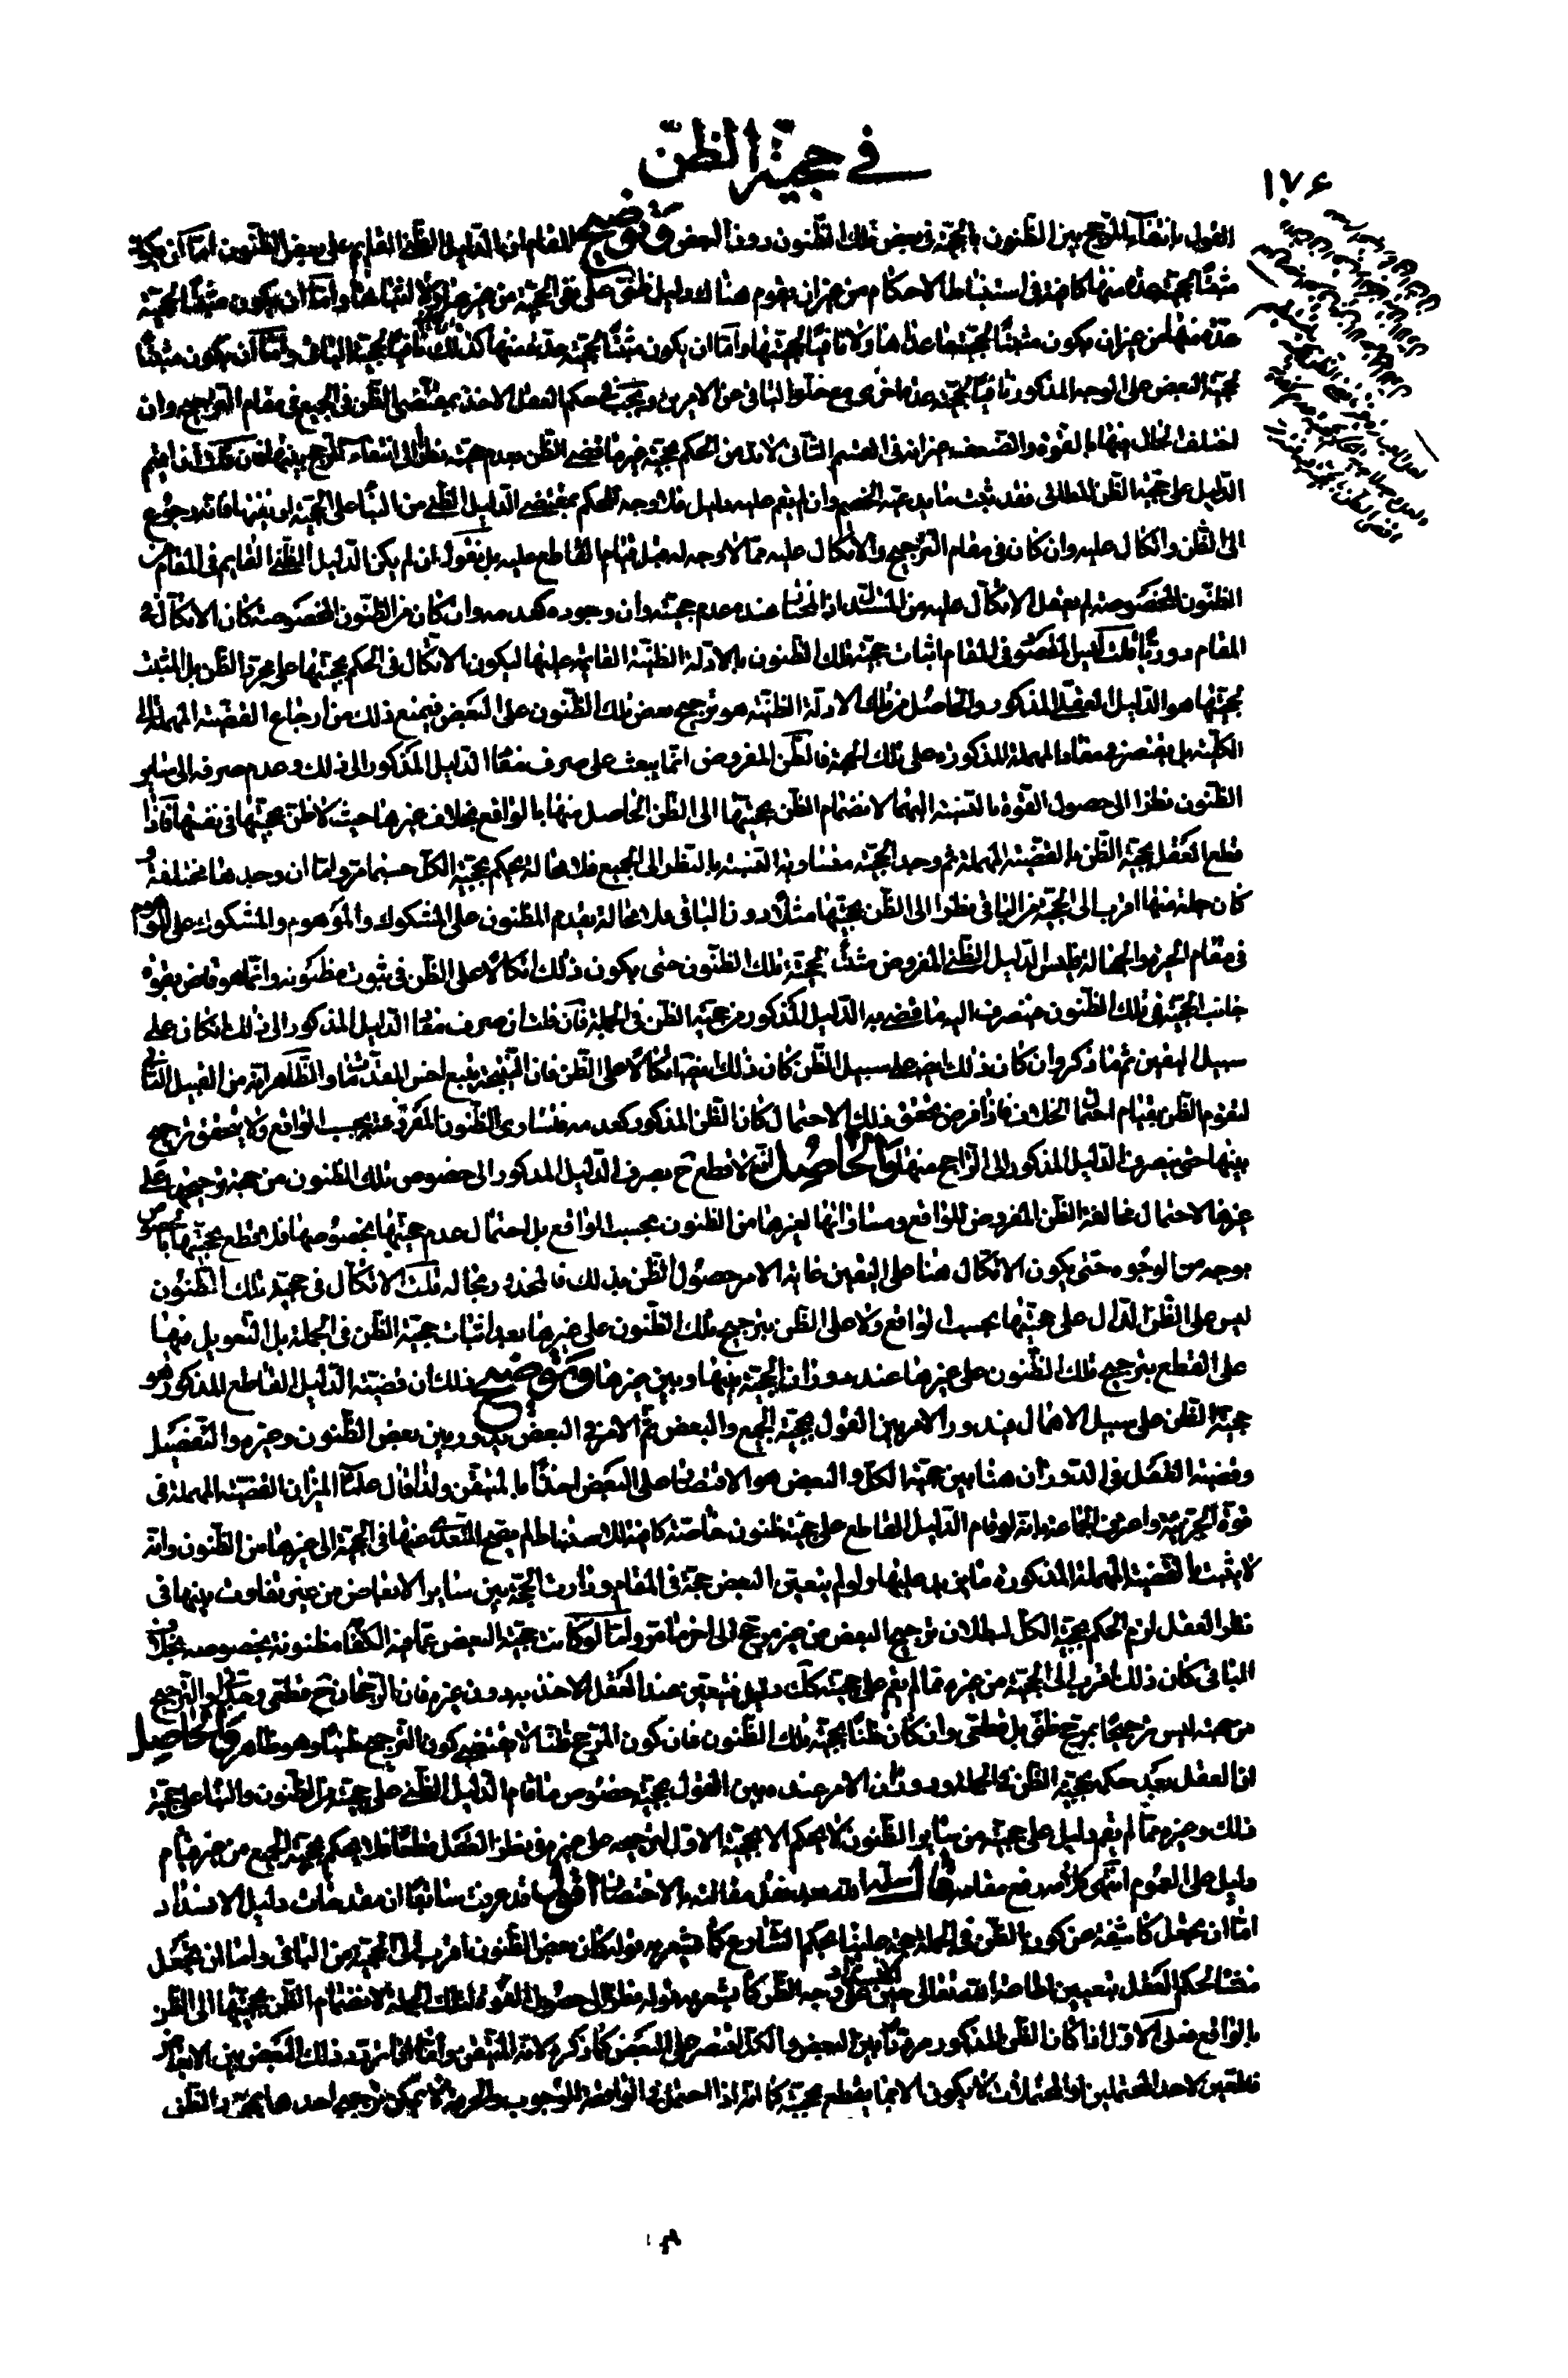 في حجية الظن
١٧۶
القول بانتفاء المرجح بين الظنون بالحجية في بعض تلك الظنون دون البعض وتوضيح المقام ان الدليل الظني القايم على بعض الظنون اما ان يكون
مثبتا لحجية عدة منها كافية في استنباط الاحكام من غير ان يقوم هناك دليل ظني على نفى الحجية من غيرها ولا اثباتها واما ان يكون مثبتا لحجية
عدة منها من غير ان يكون مثبتا لحجية ما عداها ولا نافيا لحجيتها واما ان يكون مثبتا لحجية عدة منها كذلك نافيا لحجية الباقى واما ان يكون مثبتا
لحجية البعض على الوجه المذكور نافيا لحجية عدة اخرى مع خلو الباقى عن الامرين ويجب في حكم العقل الاخذ بمقتضى الظن في الجميع في مقام الترجيح وان
اختلف الحال فيها بالقوة والضعف غير انه في القسم الثانى لا بد من الحكم بحجية غير ما قضى الظن بعدم حجيته نظرا الى انتفاء المرجح بينها فان قلت انه اذا قيم
الدليل على حجية الظن المطلق فقد ثبت ما يدعيه الخصم وان لم يقم عليه دليل فلا وجه للحكم بمقتضى الدليل الظنى من البناء على الحجية او نفيها فانه رجوع
الى الظن واتكال عليه وان كان في مقام الترجيح والاتكال عليه مما لا وجه له قبل قيام القاطع عليه بل نقول ان لم يكن الدليل الظنى القايم في المقام من
الظنون المخصوصة لم يعقل الاتكال عليه من المستدل اذ المختار عنده عدم حجيته وان وجوده كعدمه وان كان من الظنون المخصوصة كان الاتكال في
المقام دوريا قلت ليس المقصود في المقام اثبات حجية تلك الظنون بالادلة الظنية القايمة عليها ليكون الاتكال في الحكم بحجيتها على مجرد الظن بل المثبت
لحجيتها هو الدليل العقلى المذكور والحاصل من تلك الادلة الظنية هو ترجيح بعض تلك الظنون على البعض فيمنع ذلك من ارجاع القضية المهملة الى
الكلية بل يقتصر في مفاد المهملة المذكورة على تلك الجهة فالظن المفروض انما يبعث على صرف مفاد الدليل المذكور الى ذلك وعدم صرفه الى ساير
الظنون نظرا الى حصول القوة بالنسبة اليها لانضمام الظن بحجيتها الى الظن الحاصل منها بالواقع بخلاف غيرها حيث لا ظن بحجيتها في نفسها فاذا
قطع العقل بحجية الظن بالقضية المهملة ثم وجد الحجية متساوية النسبة بالنظر الى الجميع فلا محالة يحكم بحجية الكل حسبما مر واما ان وجدها مختلفة و
كان جملة منها اقرب الى الحجية من الباقى نظرا الى الظن بحجيتها مثلا دون الباقى فلا محالة يقدم المظنون على المشكوك والموهوم والمشكوك على الموهوم
في مقام الحيرة والجهالة فليس الدليل الظنى المفروض مثبتا لحجية تلك الظنون حتى يكون ذلك اتكالا على الظن في ثبوت مظنونه وانما هو قاض بقوة
جانب الحجية في تلك الظنون فينصرف اليه ما قضى به الدليل المذكور من حجية الظن في الجملة فان قلت ان صرف مفاد الدليل المذكور الى ذلك ان كان على
سبيل اليقين تم ما ذكر وان كان ذلك ايضا على سبيل الظن كان ذلك ايضا اتكالا على الظن فان النتيجة يتبع اخس المقدمات والظاهر انه من القبيل الثانى
لتقوم الظن بقيام احتمال الخلاف فاذا فرض تحقق ذلك الاحتمال كان الظن المذكور كعدمه فتساوى الظنون المفروضة بحسب الواقع ولا يتحقق ترجيح
بينها حتى ينصرف الدليل المذكور الى الراجح منها والحاصل انه لا قطع ح بصرف الدليل المذكور الى خصوص تلك الظنون من جهة ترجيحها على
غيرها لاحتمال مخالفة الظن المفروض للواقع ومساواتها لغيرها من الظنون بحسب الواقع بل احتمال عدم حجيتها بخصوصها فلا قطع بحجيتها بالخصوص
بوجه من الوجوه حتى يكون الاتكال هنا على اليقين غاية الامر حصول الظن بذلك فالمحذور بحاله قلت الاتكال في حجية تلك الظنون
ليس على الظن الدال على حجيتها بحسب الواقع ولا على الظن بترجيح تلك الظنون على غيرها بعد اثبات حجية الظن في الجملة بل التعويل فيها
على القطع بترجيح تلك الظنون على غيرها عند دوران الحجية بينها وبين غيرها وتوضيح ذلك ان قضية الدليل القاطع المذكور هو
حجية الظن على سبيل الاهمال فيدور الامر بين القول بحجية الجميع والبعض ثم الامر في البعض يدور بين بعض الظنون وغيره والتفصيل
وقضية العقل في الدوران هنا بين حجية الكل والبعض هو الاقتصار على البعض اخذا بالمتيقن ولذا قال علماء الميزان القضية المهملة في
قوة الجزئية واعترف الجماعة بانه لو قام الدليل القاطع على حجية ظنون خاصة كافية للاستنباط لم يصح التعدى عنها في الحجية الى غيرها من الظنون وانه
لا يثبت بالقضية المهملة المذكورة ما يزيد عليها ولو لم يتعين البعض حجة في المقام ودارت الحجية بين ساير الابعاض من غير تفاوت بينها في
نظر العقل لزم الحكم بحجية الكل لبطلان ترجيح البعض من غير مرجح الى اخر ما مر واما لو كانت حجية البعض مما فيه الكفاية مظنونة بخصوصه بخلاف
الباقى كان ذلك اقرب الى الحجية من غيره مما لم يقم على حجيته كك دليل فيتعين عند العقل الاخذ به دون غيره فان الرجحان ح قطعى والترجيح
من جهته ليس ترجيحا بمرجح ظنى بل قطعى وان كان ظنا بحجية تلك الظنون فان كون المرجح ظنا لا يقتضى كون الترجيح ظنيا وهو ظاهر والحاصل
ان العقل بعد حكمه بحجية الظن في الجملة ودوران الامر عنده بين القول بحجية خصوص ما قام الدليل الظنى على حجيته من الظنون والبناء على حجية
ذلك وغيره مما لم يقم دليل على حجيته من ساير الظنون لا يحكم الا بحجية الاول لترجيحه على غيره في نظر العقل قطعا فلا يحكم بحجية الجميع من غير قيام
دليل على العموم انتهى كلامه رفع مقامه بالاختصار اقول قد عرفت سابقا ان مقدمات دليل الانسداد
اما ان يجعل كاشفة عن كون الظن في الجملة حجة علينا بحكم الشارع كما يشعر به قوله كان بعض الظنون اقرب الى الحجية من الباقى واما ان يجعل
منشا لحكم العقل بتعيين اطاعة الله تعالى حين الانسداد على وجه الظن كما يشعر به قوله نظرا الى حصول القوة لتلك الجملة لانضمام الظن بحجيتها الى الظن
بالواقع فعلى الاول اذا كان الظن المذكور مرددا بين البعض والكل اقتصر على البعض كما ذكره لانه المتيقن واما اذا تردد ذلك البعض بين الابعاض
فالمعين لاحد المحتملين او المحتملات لا يكون الا بما يقطع بحجيته كما انه اذا احتمل في الواقعة الوجوب والحرمة لا يمكن ترجيح احدهما بمجرد الظن